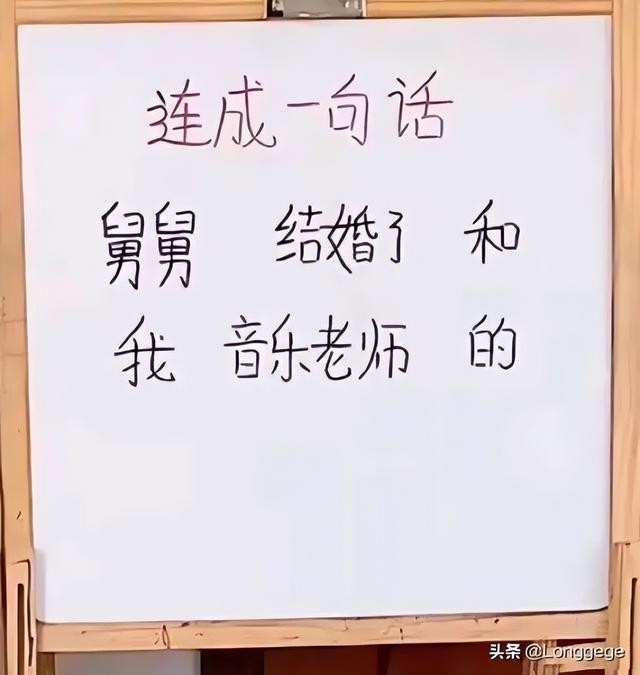 连成一句话
舅舅 结婚了 和
我 音乐老师 的
头条 @Longgege